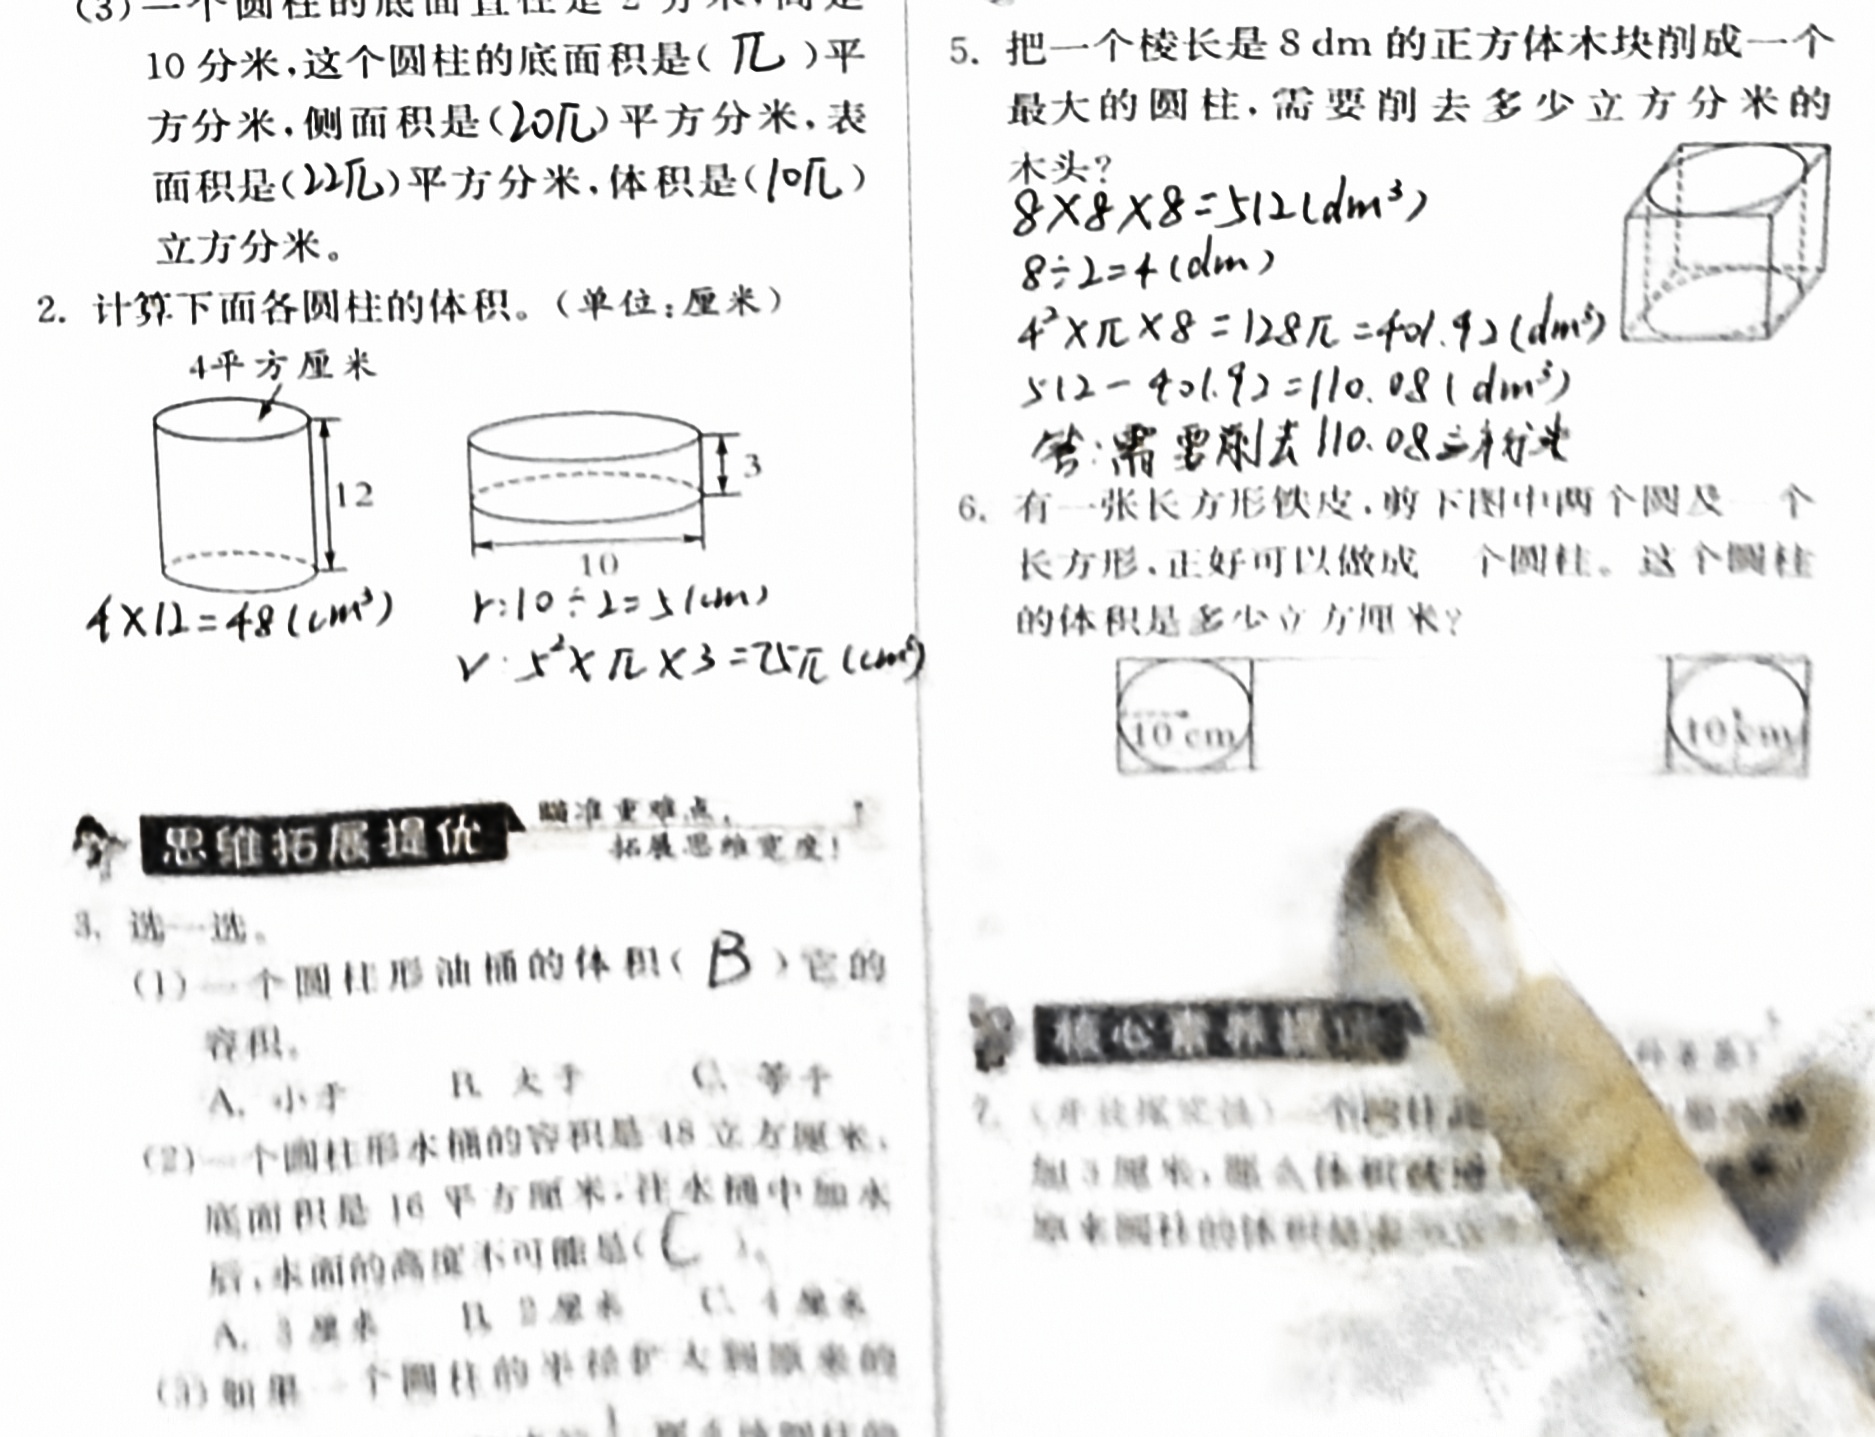 (3)一个圆柱的底面直径是2分米,高是
10分米,这个圆柱的底面积是( π )平
方分米,侧面积是(20π)平方分米,表
面积是(22π)平方分米,体积是(10π)
立方分米。
2. 计算下面各圆柱的体积。(单位:厘米)
4平方厘米
12
3
10
4×12=48(cm³)
r:10÷2=5(cm)
V:5²×π×3=75π(cm³)
思维拓展提优
瞄准重难点,
拓展思维宽度!
3. 选一选。
(1)一个圆柱形油桶的体积( B )它的
容积。
A. 小于 B. 大于 C. 等于
(2)一个圆柱形水桶的容积是48立方厘米,
底面积是16平方厘米,往水桶中加水
后,水面的高度不可能是( C )。
A. 3厘米 B. 2厘米 C. 4厘米
(3)如果一个圆柱的半径扩大到原来的
5. 把一个棱长是8dm的正方体木块削成一个
最大的圆柱,需要削去多少立方分米的
木头?
8×8×8=512(dm³)
8÷2=4(dm)
4²×π×8=128π=401.92(dm³)
512-401.92=110.08(dm³)
答:需要削去110.08
6. 有一张长方形铁皮,剪下图中两个圆及一个
长方形,正好可以做成一个圆柱。这个圆柱
的体积是多少立方厘米?
10 cm
10 cm
核心素养提优
7.
加3厘米,那么体积就增
原来圆柱的体积是